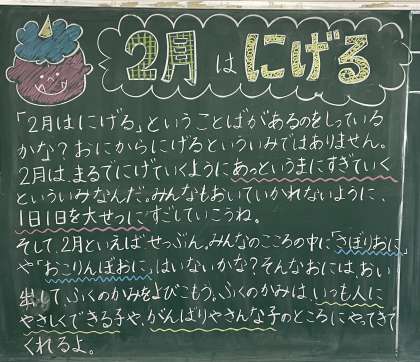 2月はにげる
「2月はにげる」ということばがあるのをしっている
かな？おにからにげるといういみではありません。
2月は、まるでにげていくようにあっというまにすぎていく
といういみなんだ。みんなもおいていかれないように、
1日1日を大せつにすごしていこうね。
そして、2月といえばせつぶん。みんなのこころの中に「さぼりおに」
や「おこりんぼおに」はいないかな？そんなおには、おい
出して、ふくのかみをよびこもう。ふくのかみは、いつも人に
やさしくできる子や、がんばりやさんな子のところにやってきて
くれるよ。